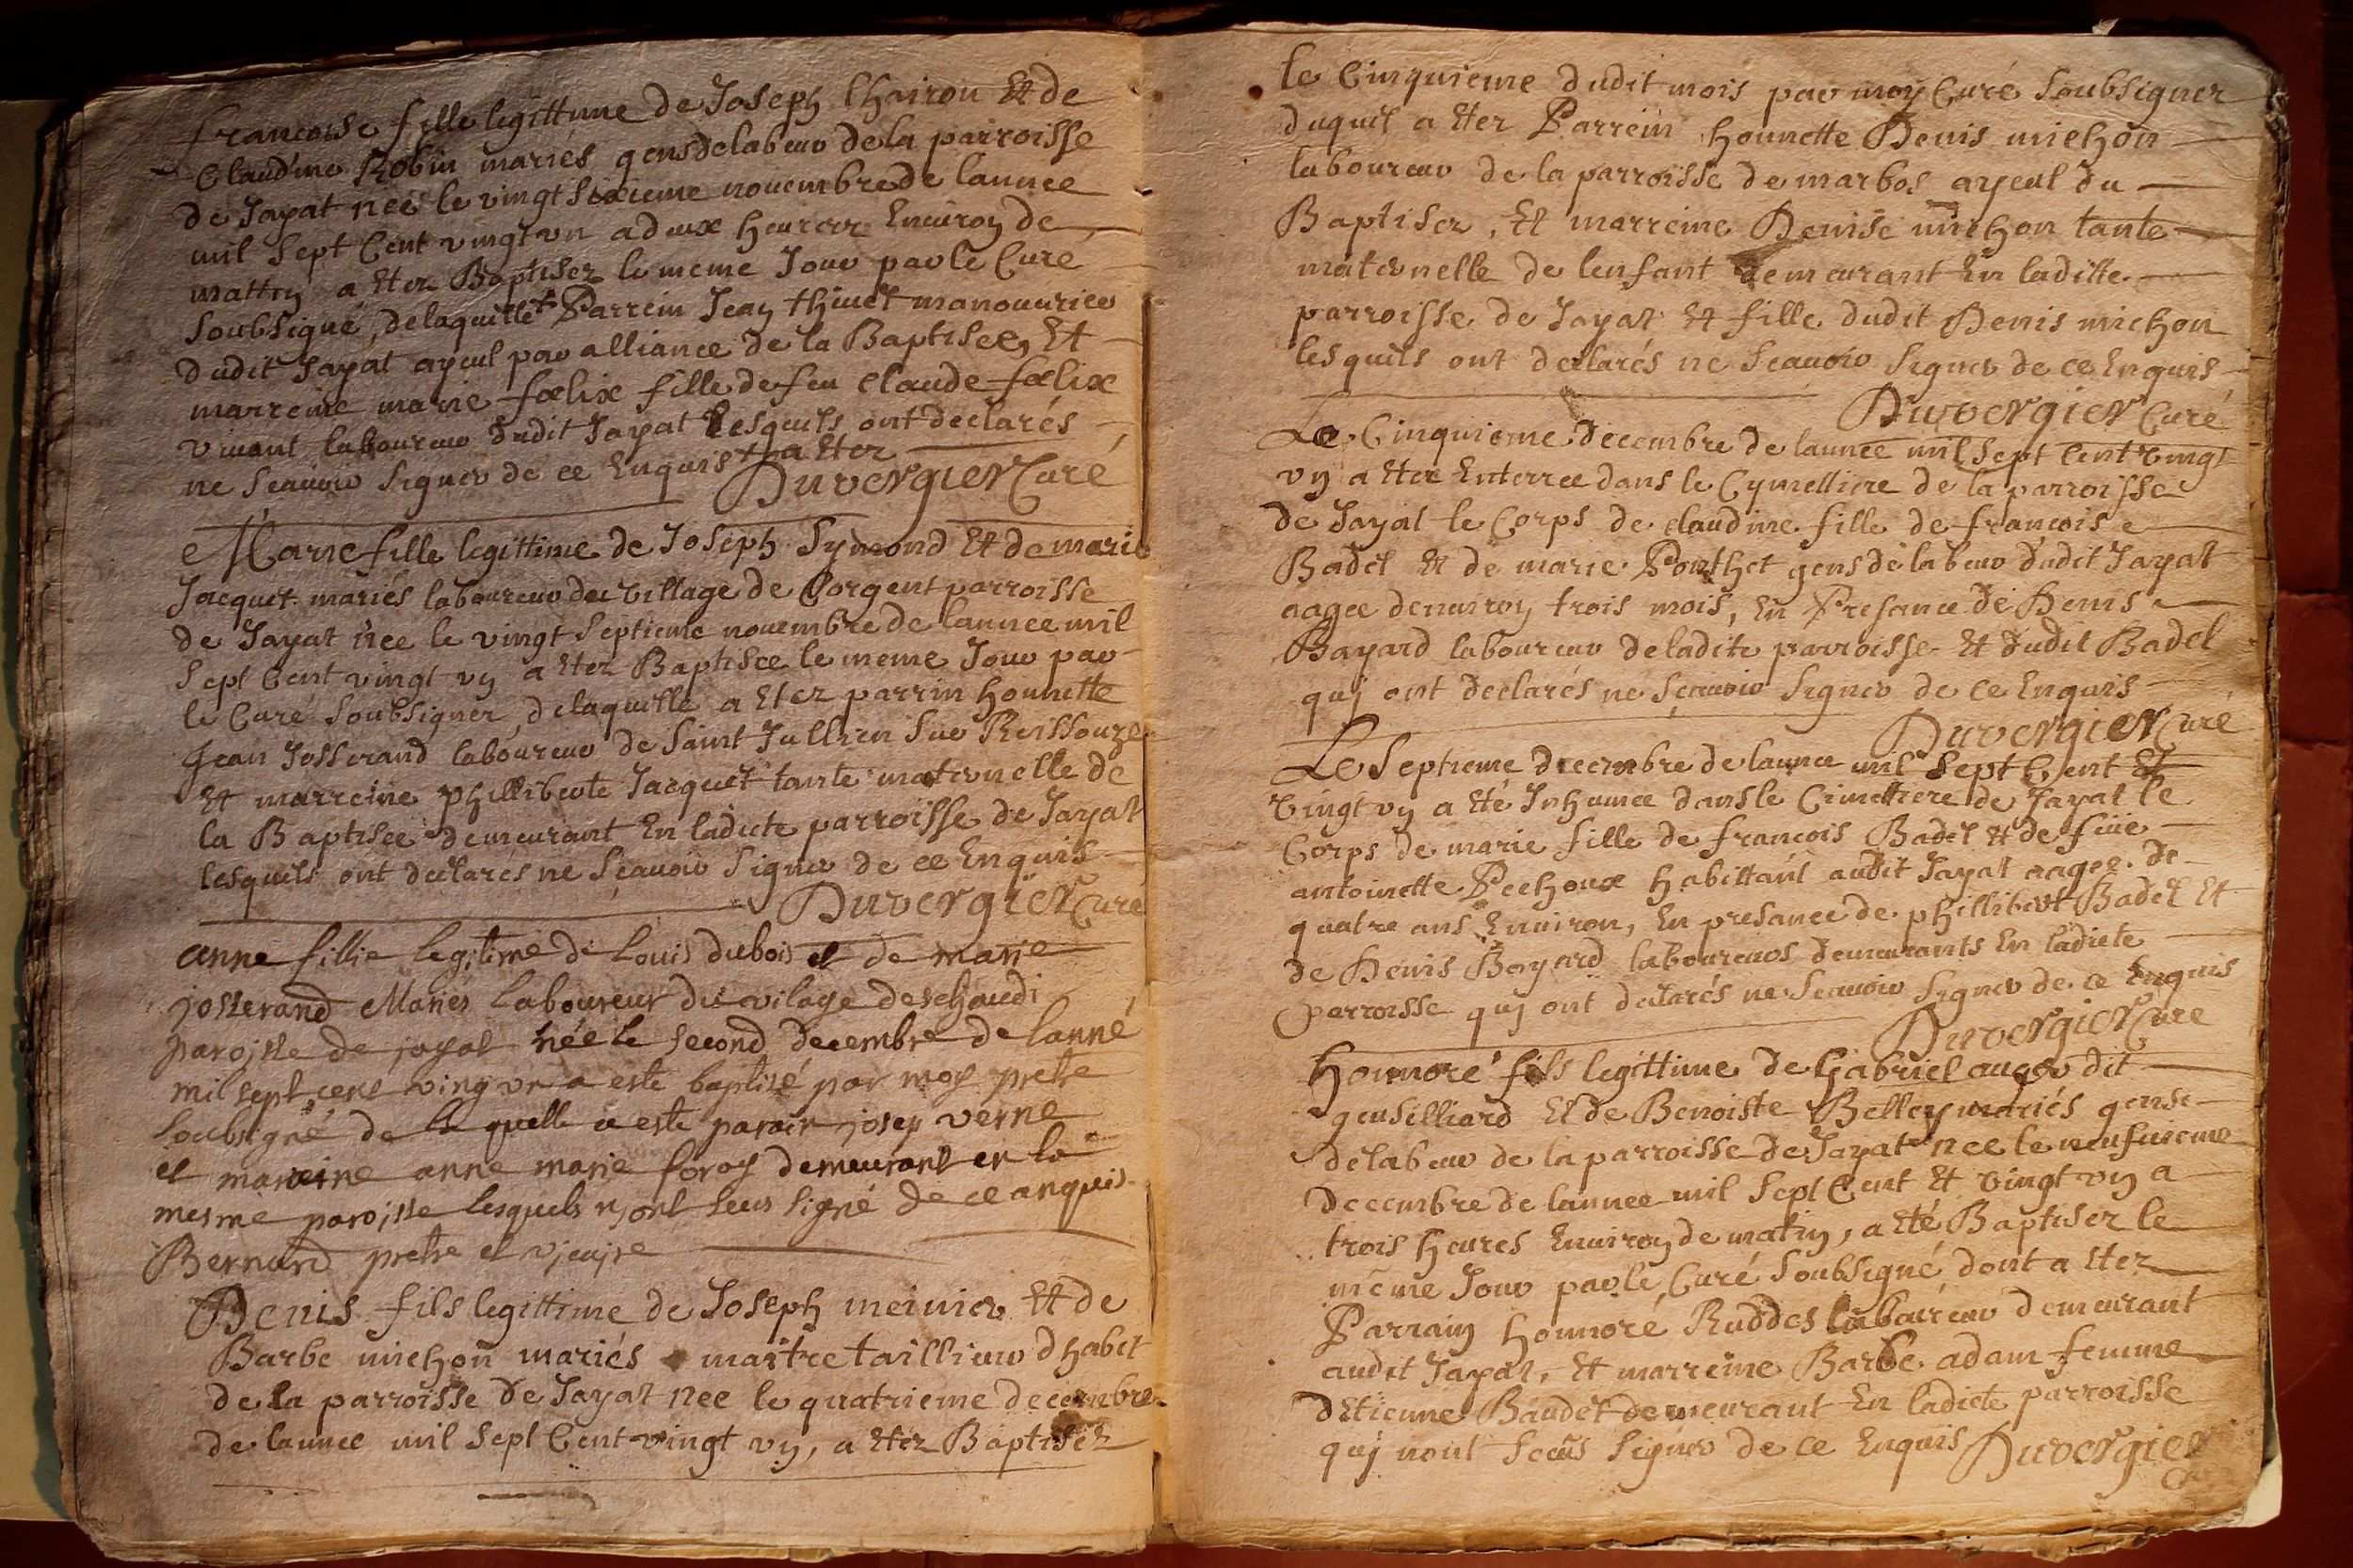 francoise fille legittime de Joseph Chairon Et de
Claudine Robin mariés gens de labeur de la parroisse
de Jayat née le vingt sixieme nouembre de lannee
mil sept Cent vingt vn a deux heures Enuiron de
mattin a Eter Baptisez le meme Jour par le Curé
soubsigné, delaquelle + Parrein Jean thiuet manouurier
dudit Jayat ayeul par alliance de la Baptisée, Et
marreine marie foelix fille de feu claude foelix
viuant laboureur dudit Jayat Lesquels ont declarés
ne sçauoir signer de ce Enquis + a Eter
Duvergier Curé
Marie fille legittime de Joseph Symond Et de marie
Jacquet mariés laboureur du village de Corgent parroisse
de Jayat née le vingt septieme nouembre de lannee mil
sept Cent vingt vn a Eter Baptisée le meme Jour par
le Curé soubsigner, delaquelle a Eter parrin honnette
Jean Josserand laboureur de saint Jullien sur Reissouze
Et marreine philliberte Jacquet tante maternelle de
la Baptisée demeurant En ladicte parroisse de Jayat
lesquels ont declarés ne sçauoir signer de ce Enquis
Duvergier Curé
anne fillie legitime de louis dubois et de marie
josserand Mariés laboureur du vilage deschaudi
paroisse de jayat née le second decembre de lanné
mil sept cent ving vn a este baptisé par moy pretre
soubsigné de la quelle a este parain josep verne
et mareine anne marie foray demeurant en la
mesme paroisse lesquels n ont seus signé de ce anquis
Bernard pretre et vicaire
Denis fils legittime de Joseph meinier Et de
Barbe michon mariés maitre taillieur d habit
de la parroisse de Jayat nee le quatrieme decembre
de lannee mil sept Cent vingt vn, a Eter Baptisez
le Cinquieme dudit mois par moy Curé soubsigner
duquel a Eter Parrein honnette Denis michon
laboureur de la parroisse de marbos ayeul du
Baptisez, Et marreine Denise michon tante
maternelle de lenfant demeurant En laditte
parroisse de Jayat Et fille dudit Denis michon
lesquels ont declarés ne sçauoir signer de ce Enquis
Duvergier Curé
Le Cinquieme decembre de lannee mil sept Cent vingt
vn a Eter Enterree dans le Cymettiere de la parroisse
de Jayat le Corps de claudine fille de francois
Badel Et de marie Pouthet gens de labeur dudit Jayat
aagee denuiron trois mois, En Presance de Denis
Bayard laboureur deladite parroisse Et dudit Badel
quj ont declarés ne sçauoir signer de ce Enquis
Duvergier Curé
Le Septieme decembre de lannee mil sept Cent Et
vingt vn a Eté Inhumee dans le Cimettiere de Jayat le
Corps de marie fille de francois Badel Et de füe
antoinette Pechoux habittant audit Jayat aagee de
quatre ans Enuiron, En presance de phillibert Badel Et
de Denis Bayard laboureurs demeurants En ladicte
parroisse quj ont declarés ne sçauoir signer de ce Enquis
Duvergier Curé
Honnoré fils legittime de Gabriel auger dit
gensilliard Et de Benoiste Belley mariés gens
de labeur de la parroisse de Jayat nee le neufuieme
decembre de lannee mil sept Cent Et vingt vn a
trois heures Enuiron de matin, a Eté Baptisez le
meme Jour par le Curé soubsigné, dont a Eter
Parrain honnoré Ruddes laboureur demeurant
audit Jayat, Et marreine Barbe adam femme
dEtienne Baudet demeurant En ladicte parroisse
quj nont sceus signer de ce Enquis Duvergier